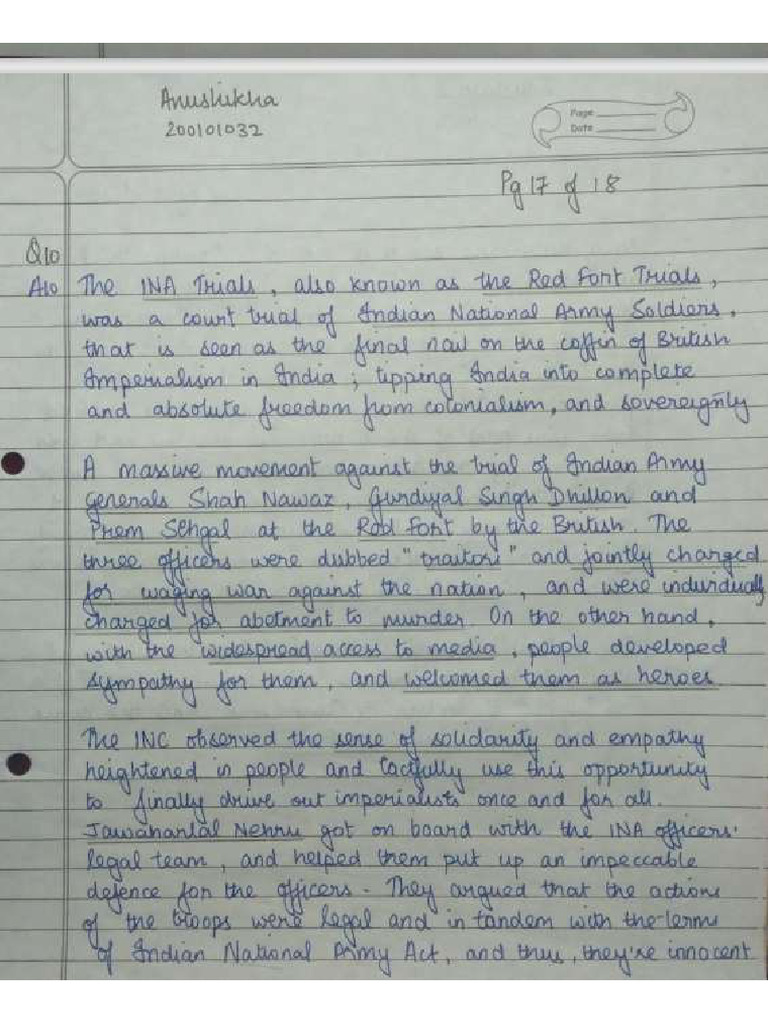 Anushkha
200101032
Page
Date
Pg 17 of 18
Q10
A10 The INA Trials, also known as the Red Fort Trials,
was a court trial of Indian National Army Soldiers,
that is seen as the final nail on the coffin of British
Imperialism in India ; tipping India into complete
and absolute freedom from colonialism, and sovereignly
A massive movement against the trial of Indian Army
Generals Shah Nawaz, Gurdiyal Singh Dhillon and
Prem Sehgal at the Red Fort by the British. The
three officers were dubbed "traitors" and jointly charged
for waging war against the nation, and were individually
charged for abetment to murder. On the other hand,
with the widespread access to media, people developed
sympathy for them, and welcomed them as heroes
The INC observed the sense of solidarity and empathy
heightened in people and tactfully use this opportunity
to finally drive out imperialists once and for all.
Jawaharlal Nehru got on board with the INA officers'
legal team, and helped them put up an impeccable
defence for the officers. They argued that the actions
of the troops were legal and in tandem with the terms
of Indian National Army Act, and thus, they're innocent